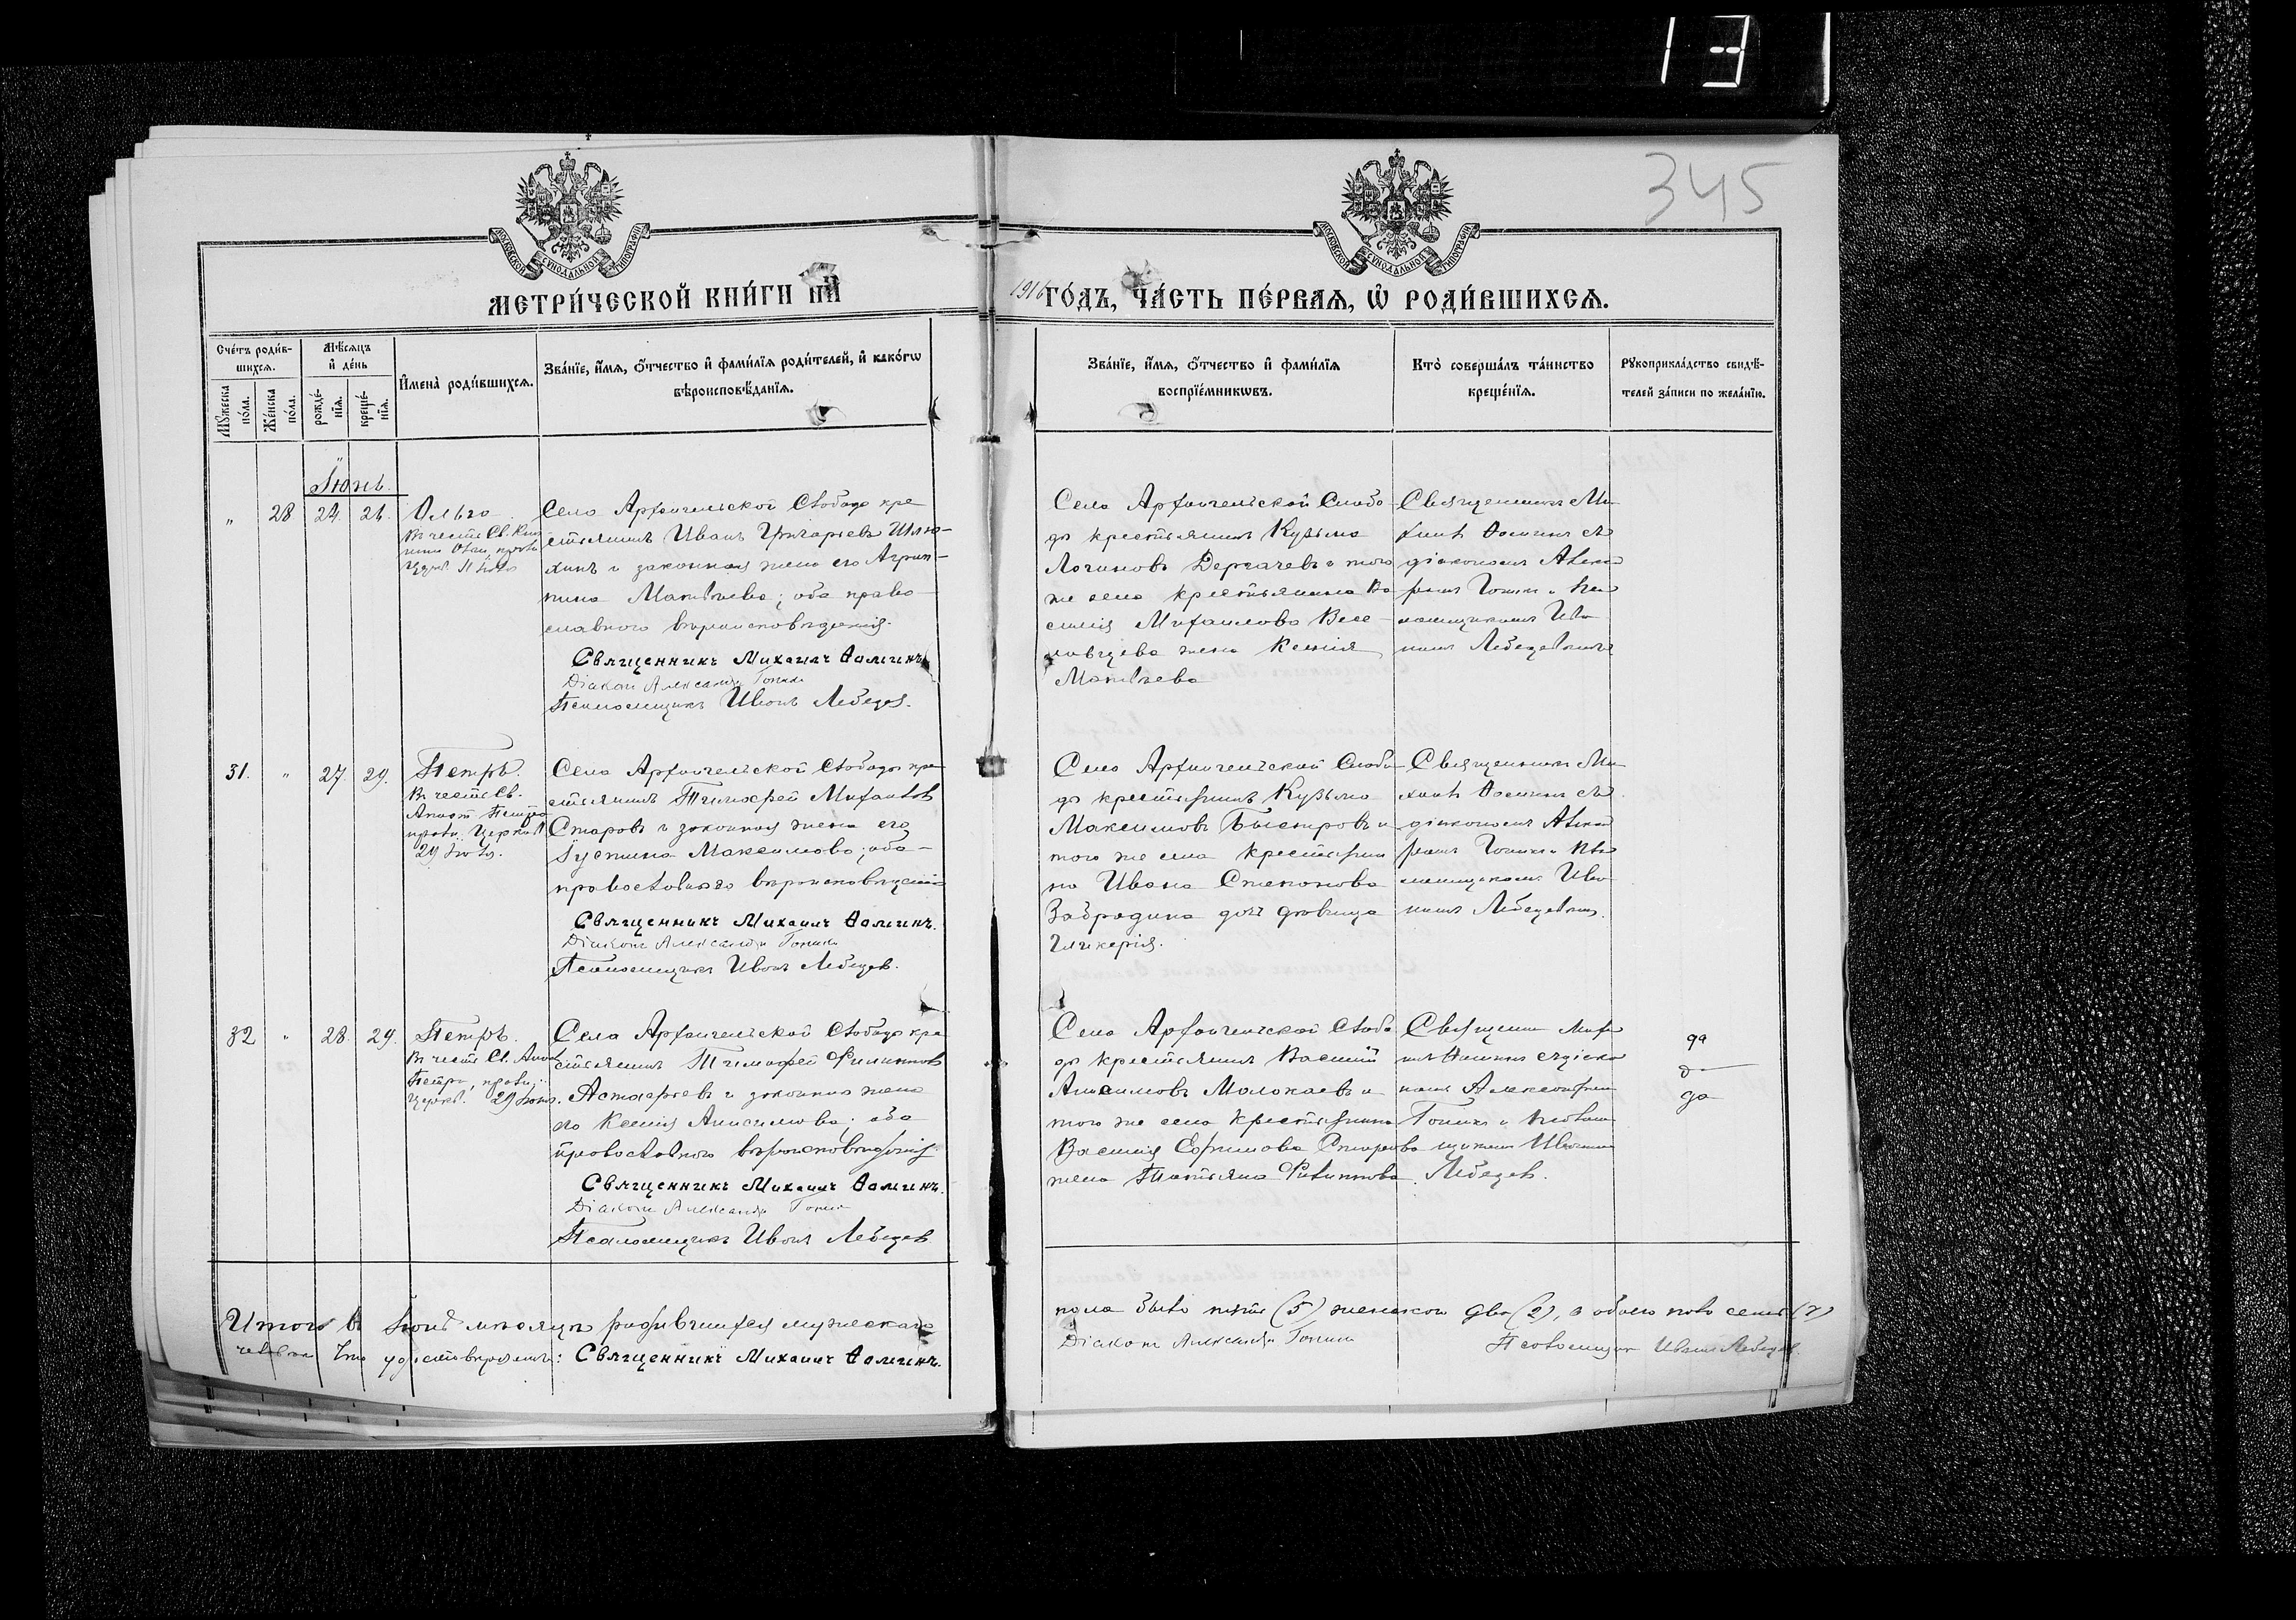 13
345
МОСКОВСКОЙ СѴНОДАЛЬНОЙ ТИПОГРАФІИ
МОСКОВСКОЙ СѴНОДАЛЬНОЙ ТИПОГРАФІИ
МЕТРИ́ЧЕСКОЙ КНИ́ГИ НА́
1916 ГО́ДЪ, ЧА́СТЬ ПЕ́РВАѦ, Ѡ РОДИ́ВШИХСѦ.
Сче́тъ роди́в-
шихсѧ.
Мѣ́сѧцъ
и҆ де́нь
Мꙋ́жеска
по́ла.
Же́нска
по́ла.
рожде́-
нїѧ.
креще́-
нїѧ.
И҆мена̀ роди́вшихсѧ.
Зва́нїе, и҆́мѧ, ѻ҆́тчество и҆ фами́лїѧ роди́телей, и҆ како́гѡ
вѣроисповѣ́данїѧ.
Зва́нїе, и҆́мѧ, ѻ҆́тчество и҆ фами́лїѧ
воспрїе́мникѡвъ.
Кто̀ соверша́лъ та́инство
креще́нїѧ.
Рꙋкоприкла́дство свидѣ́-
телей за́писи по жела́нїю.
Іюнь.
„ 28 24. 24.
Ольга
Въ честь Св. Кня
гини
Церк. 11 Іюля
Село Архангельской Слободы кре
стьянинъ Иванъ Григорьевъ
и законная жена его Агрип-
пина Матвѣева; оба право-
славного вѣроисповѣданія.
Священникъ Михаилъ Ѳоминъ
Діаконъ Александръ Тонинъ
Псаломщикъ Иванъ Лебедев.
Село Архангельской Слобо
ды крестьянинъ Кузьма
Логиновъ Дергачевъ и того
же села крестьянина Ва
силія Михаилова Весе-
ловцева жена Ксенія
Матвѣева
Священникъ Ми
хаилъ Ѳоминъ съ
діакономъ Алекса
ндромъ Тонинъ и пса
ломщикомъ Ива
номъ Лебедевымъ
31. „ 27. 29.
Петръ.
Въ честь Св.
Апост Петра
празд. Церков
29 Іюня.
Село Архангельской Слободы кре
стьянинъ Тимофей Михаилов
Старовъ и законная жена его
Іустина Максимова; оба-
православного вѣроисповѣданія
Священникъ Михаилъ Ѳоминъ.
Діаконъ Александръ Тонинъ
Псаломщикъ Иванъ Лебедев.
Село Архангельской Слобо
ды крестьянинъ Кузьма
Максимовъ Быстровъ и
того же села крестьяни
на Ивана Степанова
Забродина дочь девица
Гликерія.
Священникъ Ми
хаилъ Ѳоминъ съ
діакономъ Алекса
ндромъ Тонинъ и пса
ломщикомъ Ива
номъ Лебедевым.
32 „ 28. 29.
Петръ.
Въ честь Св. Апос
Петра, празд.
Церков. 29 Іюня.
Села Архангельской Слободы кре
стьянинъ Тимофей Филиппов
Астафьевъ и законная жена
его Ксенія Анисимова; оба
православного вѣроисповѣданія
Священникъ Михаилъ Ѳоминъ.
Діаконъ Александръ Тонинъ
Псаломщикъ Иванъ Лебедев
Село Архангельской Слобо
ды крестьянинъ Василій
Анисимовъ Молокаевъ и
того же села крестьянина
Василія Ефимова Старова
жена Татьяна Филиппова
Священни Миха
илъ Ѳоминъ съ діако
номъ Александром
Тонинъ и псалом
щикомъ Иваном
Лебедев.
да
да
Итого въ Іюнѣ мѣсяцѣ родившихся мужескаго
пола было пять (5) женского два (2), а обоего пола семь (7)
человѣкъ Что удостовѣряемъ: Священникъ Михаилъ Ѳоминъ.
Діаконъ Александръ Тонинъ
Псаломщик Иванъ Лебедев.